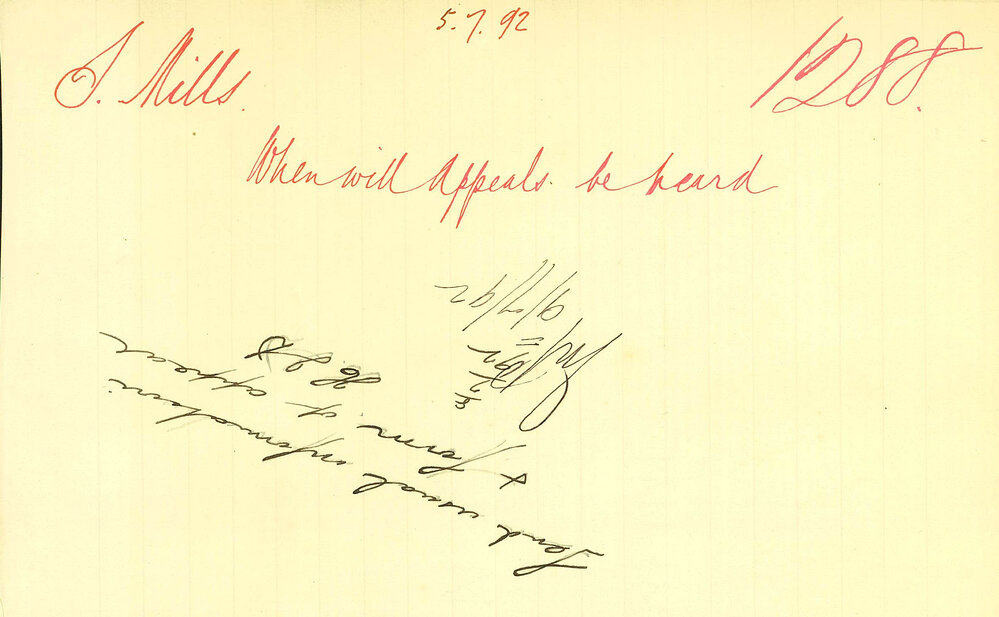 5.7.92
S. Mills.
1288.
When will Appeals. be heard
Send usual information
+ form of appeal
8/7/92
9/7/92